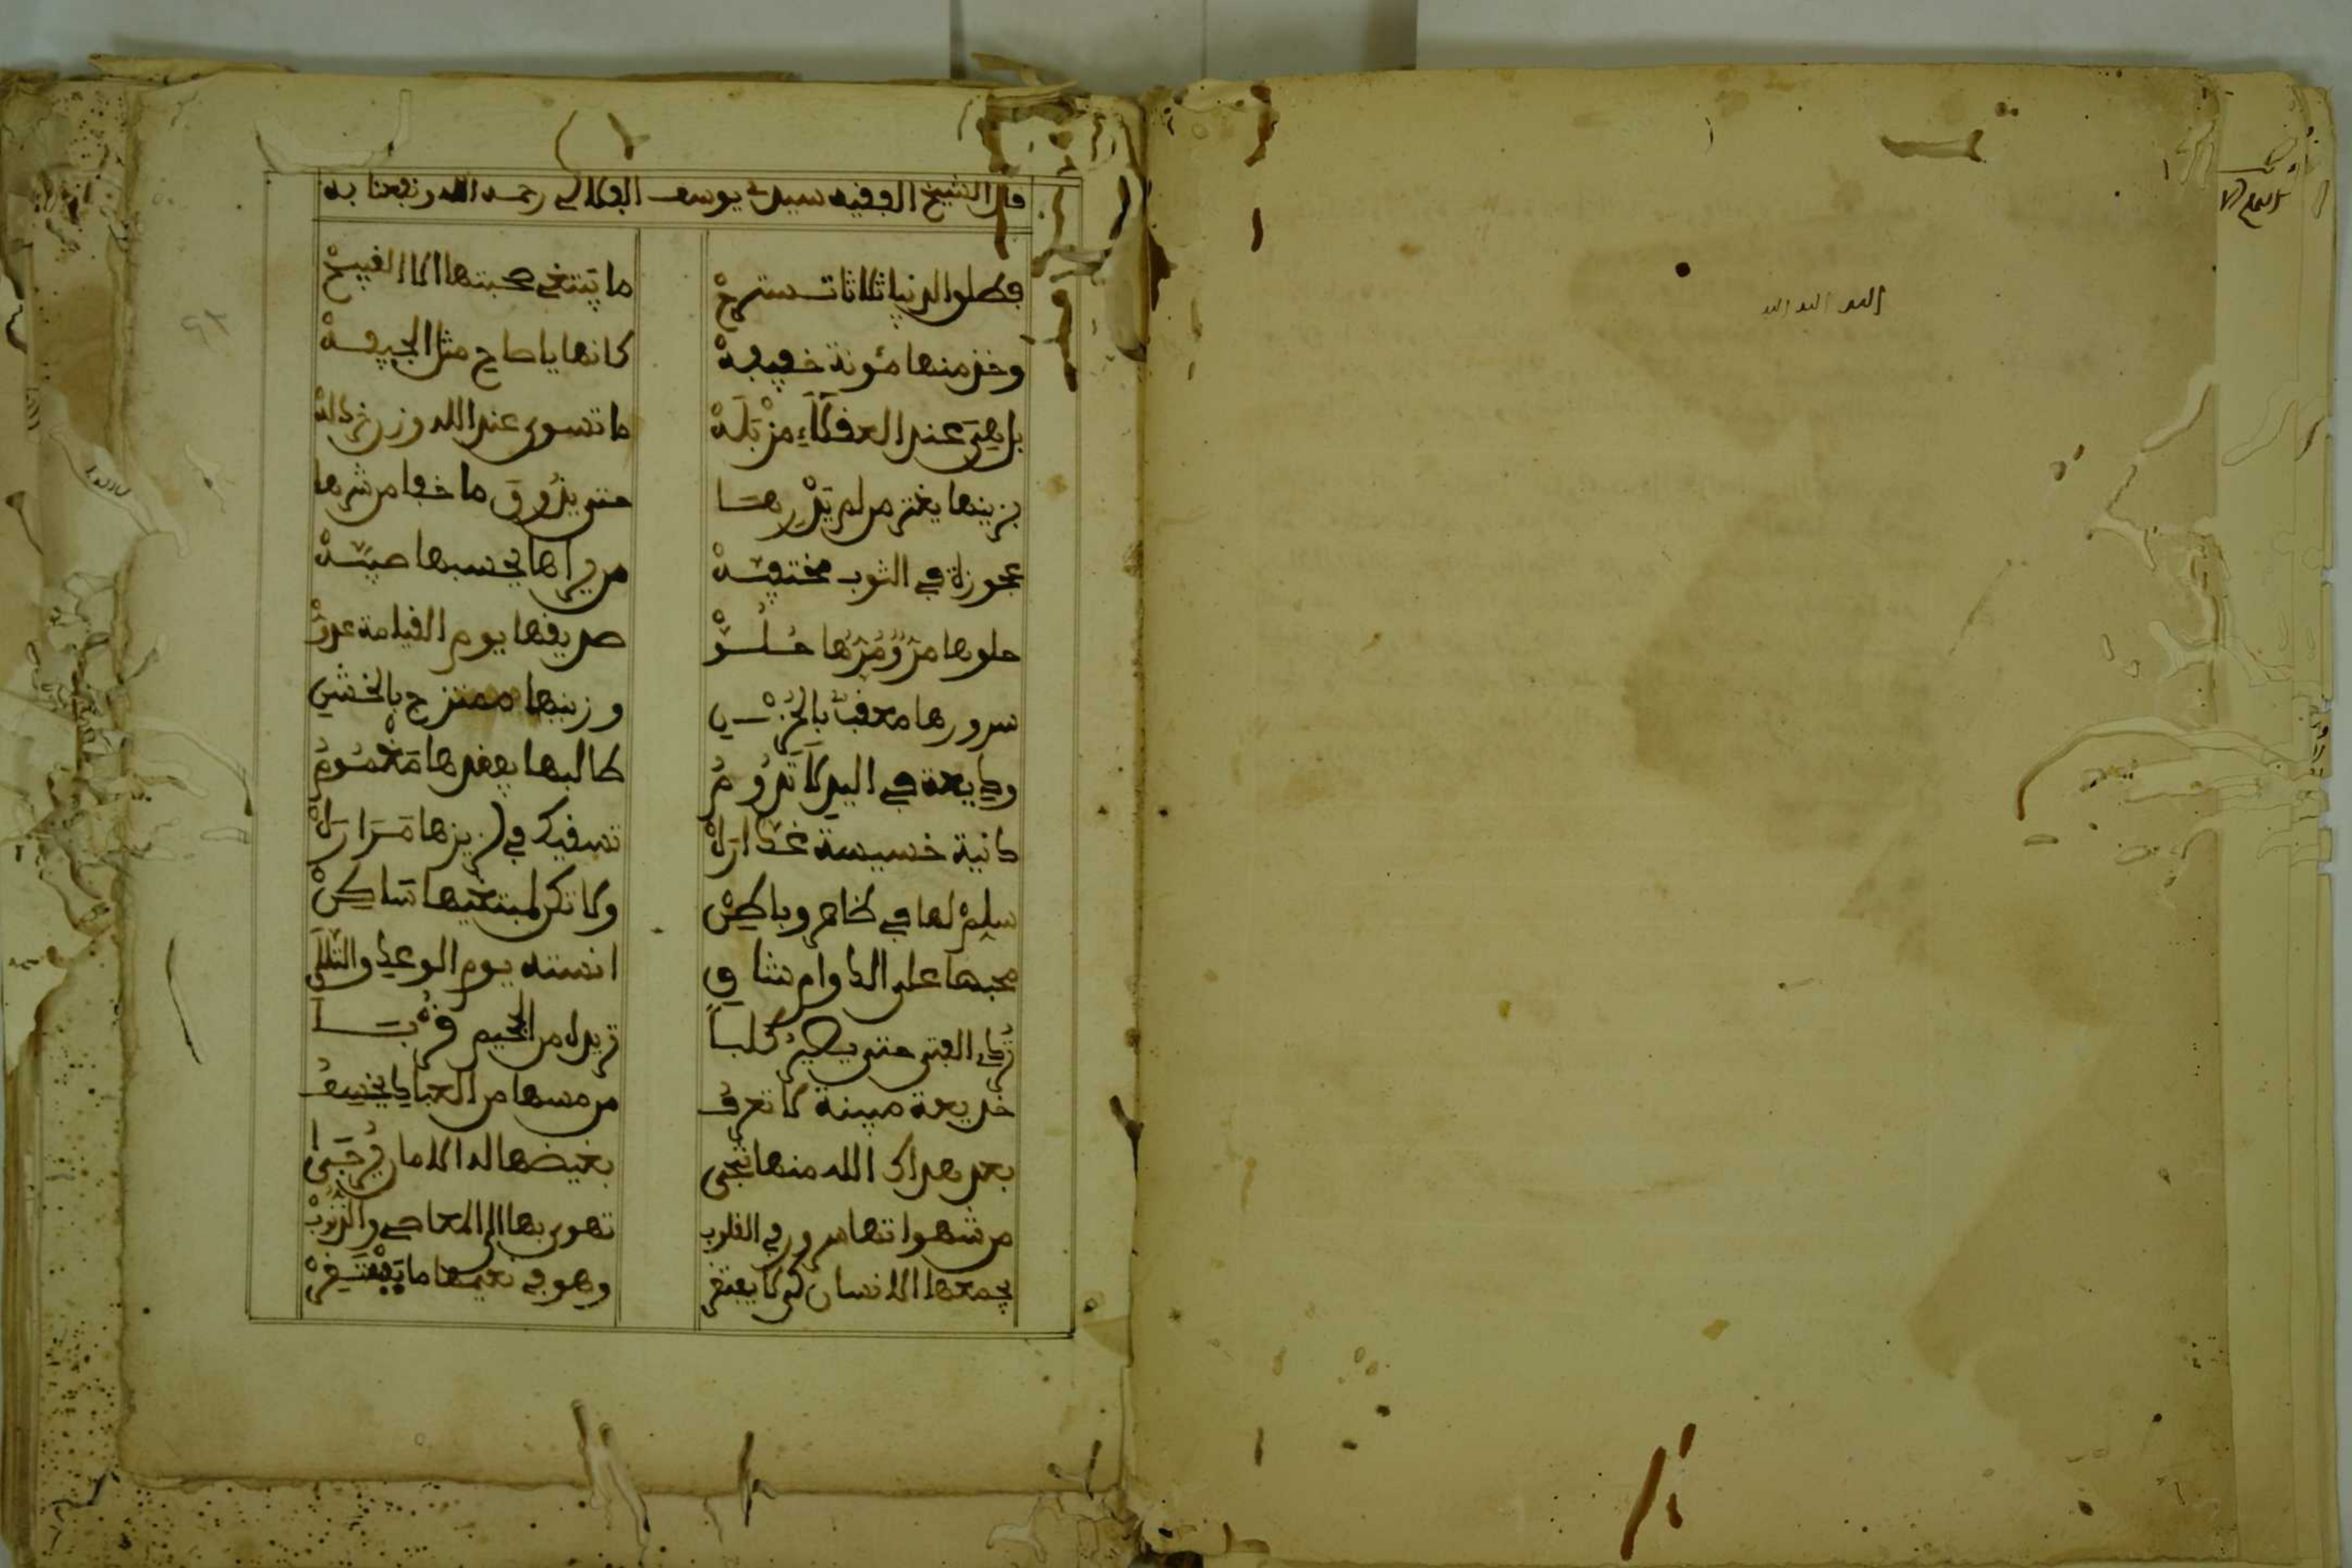 قال الشيخ الفقيه سيدي يوسف الفلالي رحمه الله ونفعنا به
فطلو الدنيا ثلاثا تستريح ما يبتغي صحبتها الا القبيح
وخذ منها مئونة خفيفة كانها يا صاح مثل الجيفة
بل هي عند العقلاء مزبلة ما تسوى عند الله وزن خردلة
بزينها يغتر من لم يدرها حتى يذوق ما خفا من شرها
عجوزة في الثوب مختفية من يراها يحسبها صبية
حلوها مر ومرها حلو صديقها يوم القيامة عدو
سرورها معقب بالحزن وزينها ممتزج بالخشين
وديعة في اليد لا تدوم طالبها بفقدها مغموم
دانية خسيسة غدارة تسقيك في لذيذها مرارة
سلم لها في ظاهر وباطن ولا تكن لمبتغيها ساكن
محبها على الدوام شاقي انسته يوم الوعد والتلاقي
تردي الفتى حتى يصير كلبا تزيده من الجحيم قربا
خديعة مبينة لا تعرف من مسها من العباد يخسف
بعد هداك الله منها تنجى بغيضها له الامان يرجى
من شهواتها سرور في القلوب تهوى بها الى المعاصي والذنوب
يجمعها الانسان كي لا يفتقر وهو في نعيمها ما يفتقر
الحمد لله الله